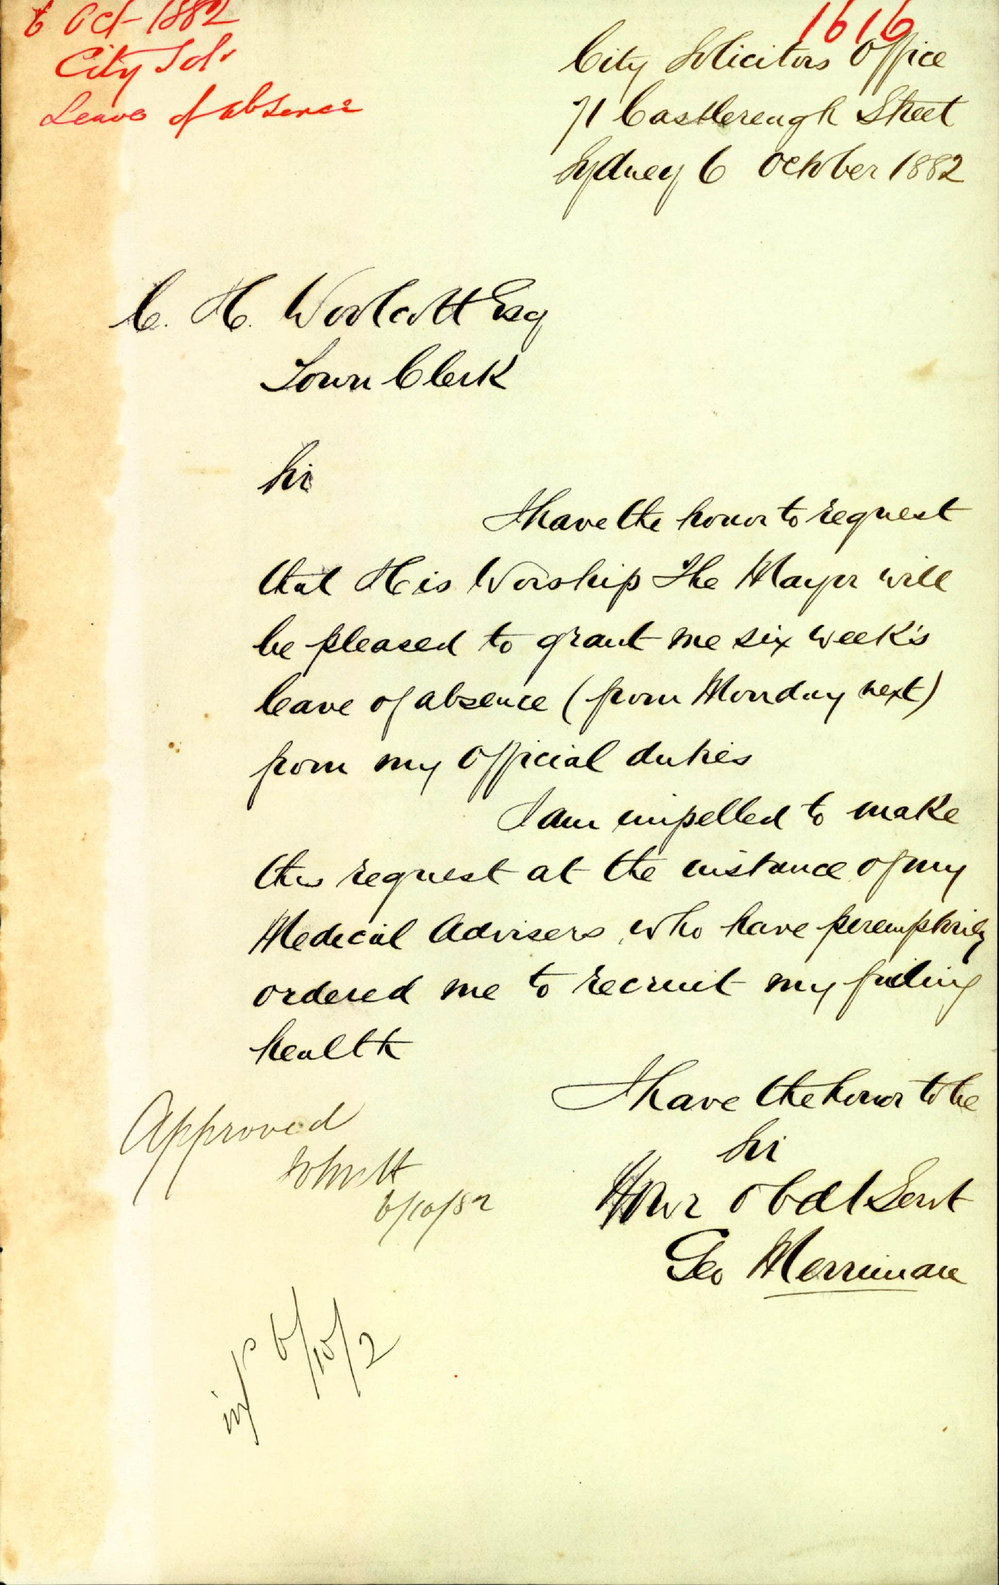 6 Oct 1882
City Solr
Leave of absence
1616
City Solicitors Office
71 Castlereagh Street
Sydney 6 October 1882
C. H. Woolcott Esq
Town Clerk
Sir
I have the honor to request
that His Worship The Mayor will
be pleased to grant me six week's
leave of absence (from Monday next)
from my Official duties
I am impelled to make
this request at the instance of my
Medical Advisers, who have peremptorily
ordered me to recruit my failing
health
I have the honor to be
Sir
Your obdt Servt
Geo Merriman
Approved
6/10/82
inf 6/10/2